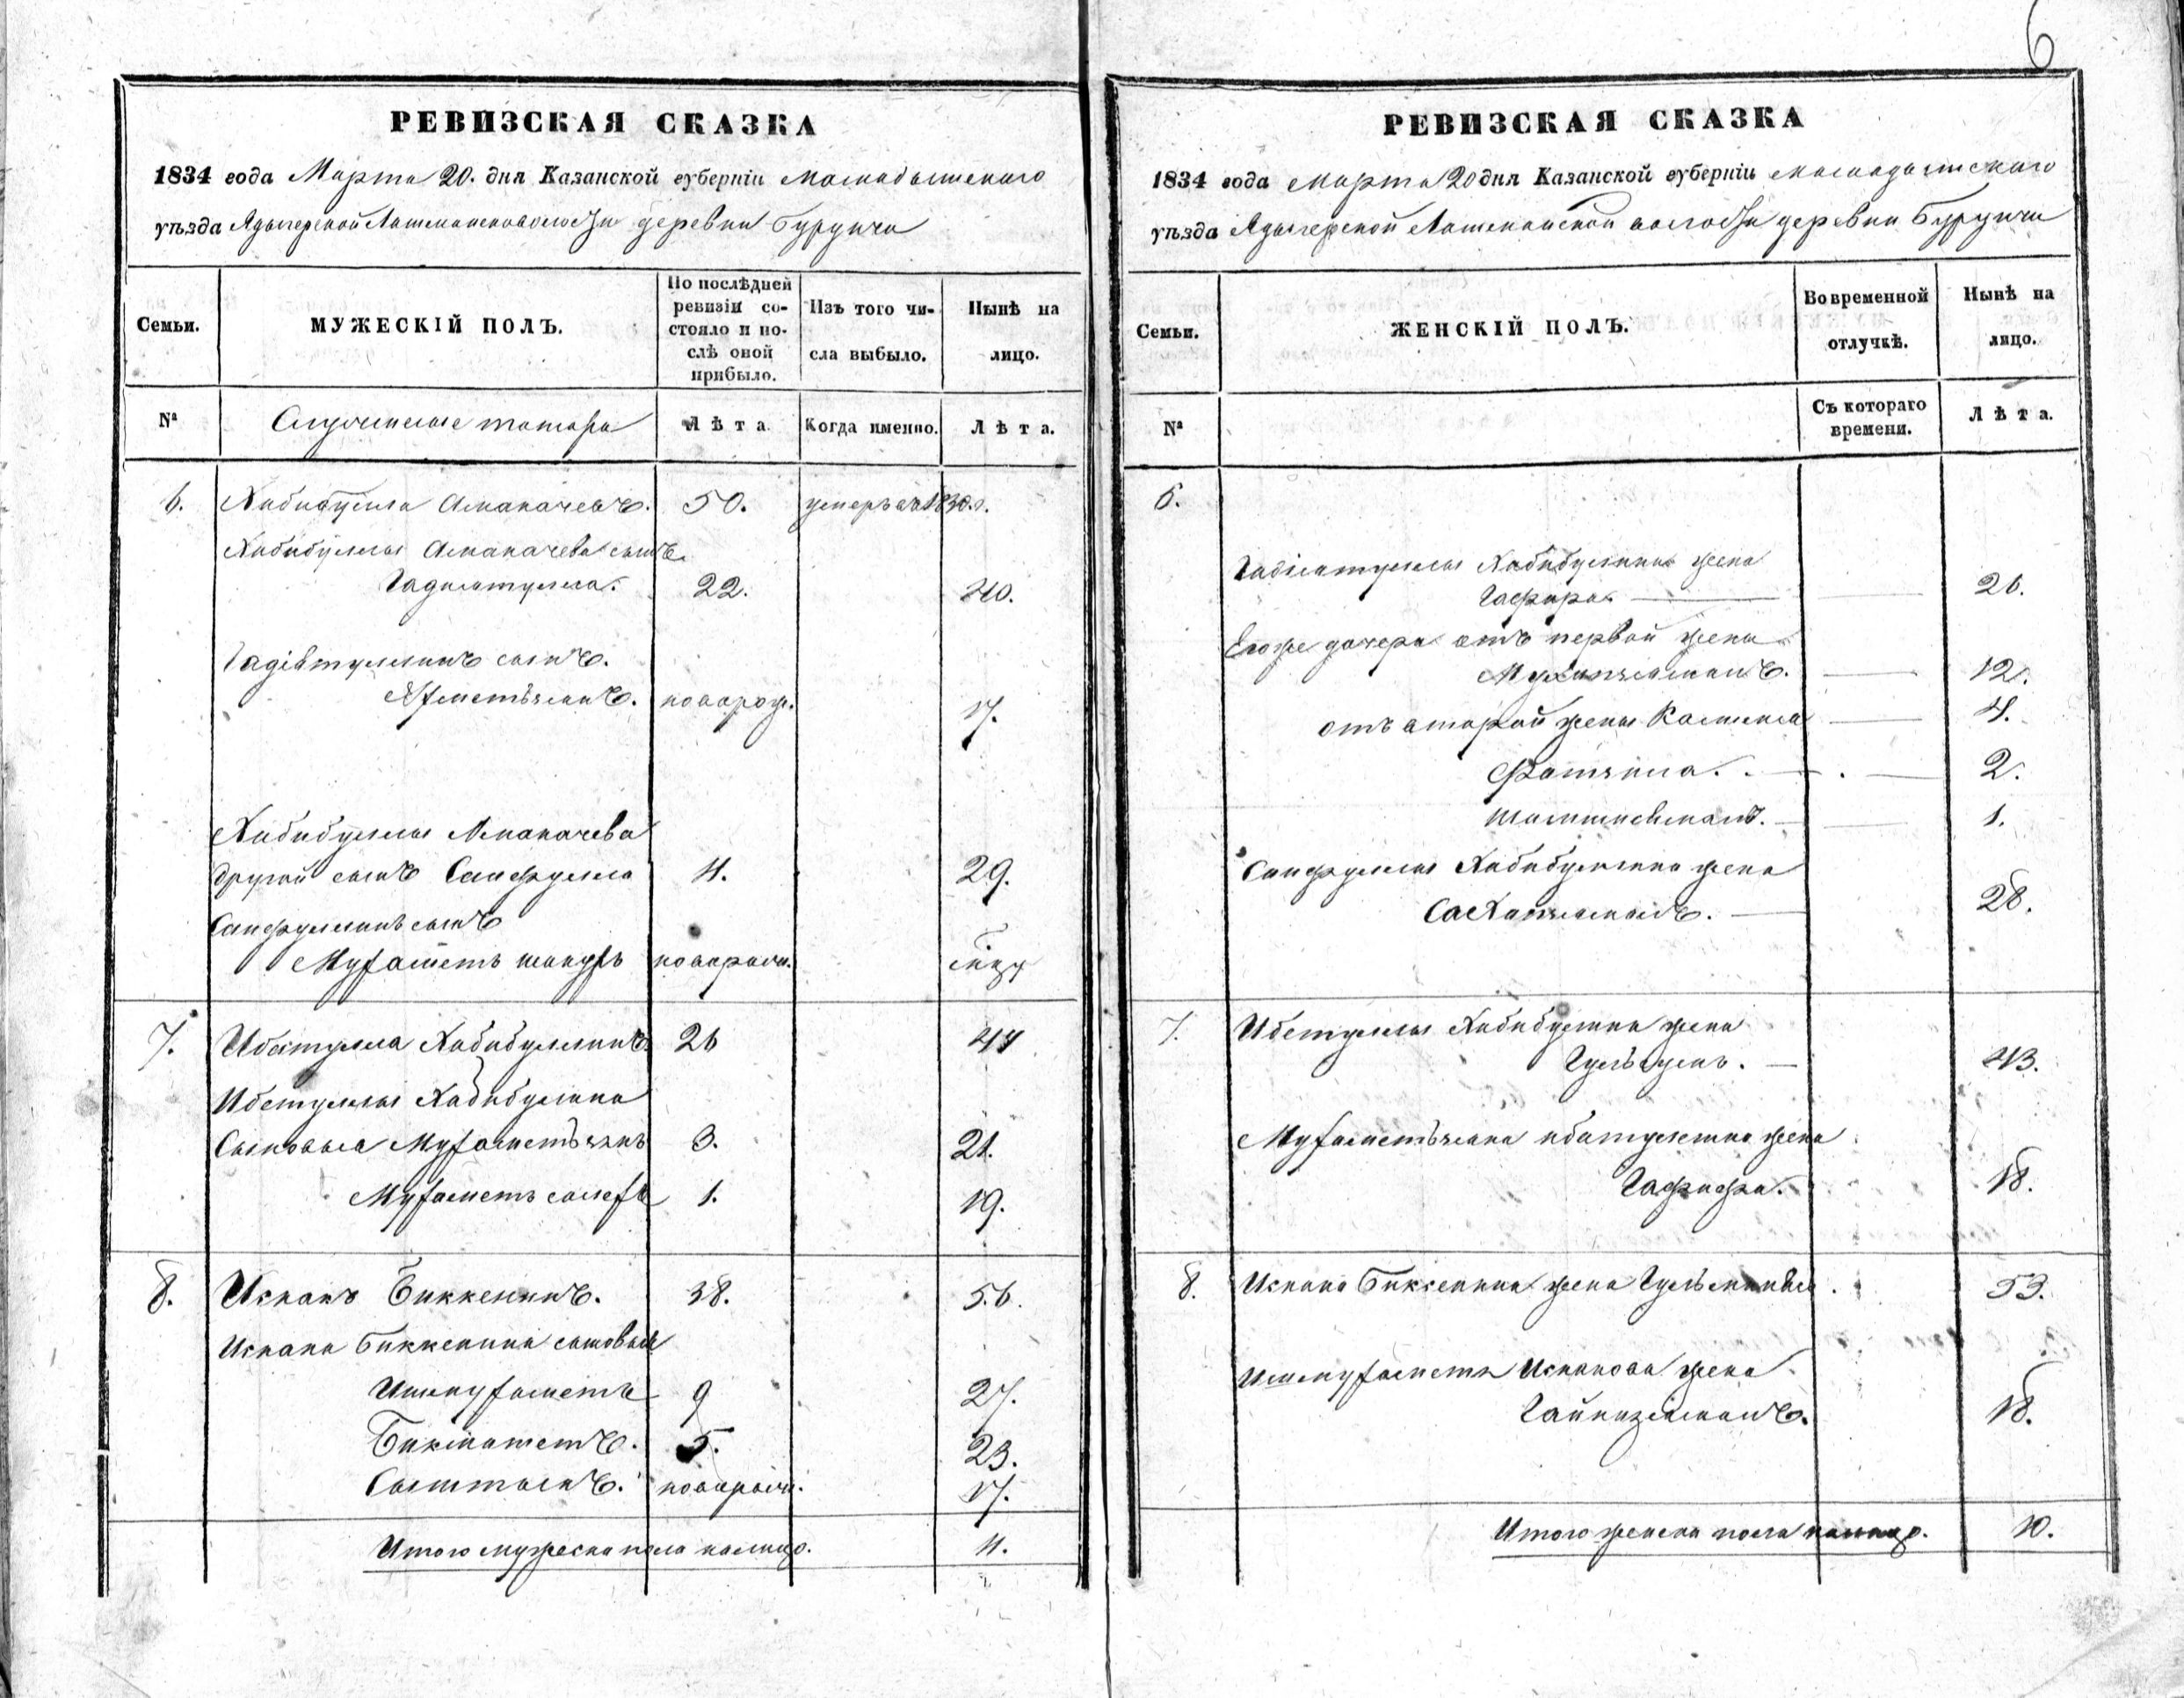 6
РЕВИЗСКАЯ СКАЗКА
1834 года Марта 20. дня Казанской губерніи Мамадышскаго
уѣзда Адаевской Лашманской волости деревни Бурунчи
Семьи.
МУЖЕСКІЙ ПОЛЪ.
По послѣдней
ревизіи со-
стояло и по-
слѣ оной
прибыло.
Изъ того чи-
сла выбыло.
Нынѣ на
лицо.
№
Служилые татара
Лѣта
Когда именно.
Лѣта.
6. Хабибулла Асмакачевъ. 50. умеръ въ 1830.г.
Хабибуллы Асмакачева сынъ
Гадиатулла. 22. 40.
Гадіатуллинъ сынъ.
Ахметьянъ. новорож. 17.
Хабибуллы Асмакачева
другой сынъ Сайфулла 11. 29.
Сайфуллинъ сынъ
Мухаметь шакуръ новорожд.
7. Ибатулла Хабибуллинъ 26 44
Ибетуллы Хабибулина
Сыновья Мухаметьянъ 3. 21.
Мухаметь 1. 19.
8. Искакъ Биккенинъ. 38. 56.
Искака Биккенина сыновья
Ишмухаметь 9 27.
Бикматетъ. 5. 23.
новорожд. 17.
Итого мужеска пола налицо. 11.
РЕВИЗСКАЯ СКАЗКА
1834 года Марта 20 дня Казанской губерніи Мамадышскаго
уѣзда Адаевской Лашманской волости деревни Бурунчи
Семьи.
ЖЕНСКІЙ ПОЛЪ.
Во временной
отлучкѣ.
Нынѣ на
лицо.
№
Съ котораго
времени.
Лѣта.
6.
Гадіатуллы Хабибулина жена
Гафира. 26.
Его же дочери отъ первой жены
12.
отъ второй жены 4.
Фатыма. 2.
1.
Сайфуллы Хабибулина жена
28.
7. Ибетуллы Хабибулина жена
43.
Мухаметьяна ибатулина жена
Гафифа. 18.
8. Искака Биккенина жена 53.
Ишмухаметя Искакова жена
18.
Итого женска пола налицо. 10.